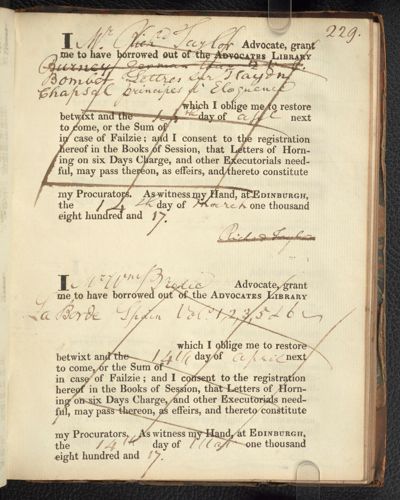 229.
I Mr Richd Taylor Advocate, grant
me to have borrowed out of the ADVOCATES LIBRARY
Burney
Bombet Lettres sur Haydn
Chapsal principes d'Eloquence
which I oblige me to restore
betwixt and the 14th day of april next
to come, or the Sum of
in case of Failzie; and I consent to the registration
hereof in the Books of Session, that Letters of Horn-
ing on six Days Charge, and other Executorials need-
ful, may pass thereon, as effeirs, and thereto constitute
my Procurators. As witness my Hand, at EDINBURGH,
the 14th day of March one thousand
eight hundred and 17.
Richard Taylor
I Mr Wm Brodie Advocate, grant
me to have borrowed out of the ADVOCATES LIBRARY
La Borde Spain Vols 1 2 3 5 & 6
which I oblige me to restore
betwixt and the 14th day of april next
to come, or the Sum of
in case of Failzie; and I consent to the registration
hereof in the Books of Session, that Letters of Horn-
ing on six Days Charge, and other Executorials need-
ful, may pass thereon, as effeirs, and thereto constitute
my Procurators. As witness my Hand, at EDINBURGH,
the 14th day of Mar one thousand
eight hundred and 17.